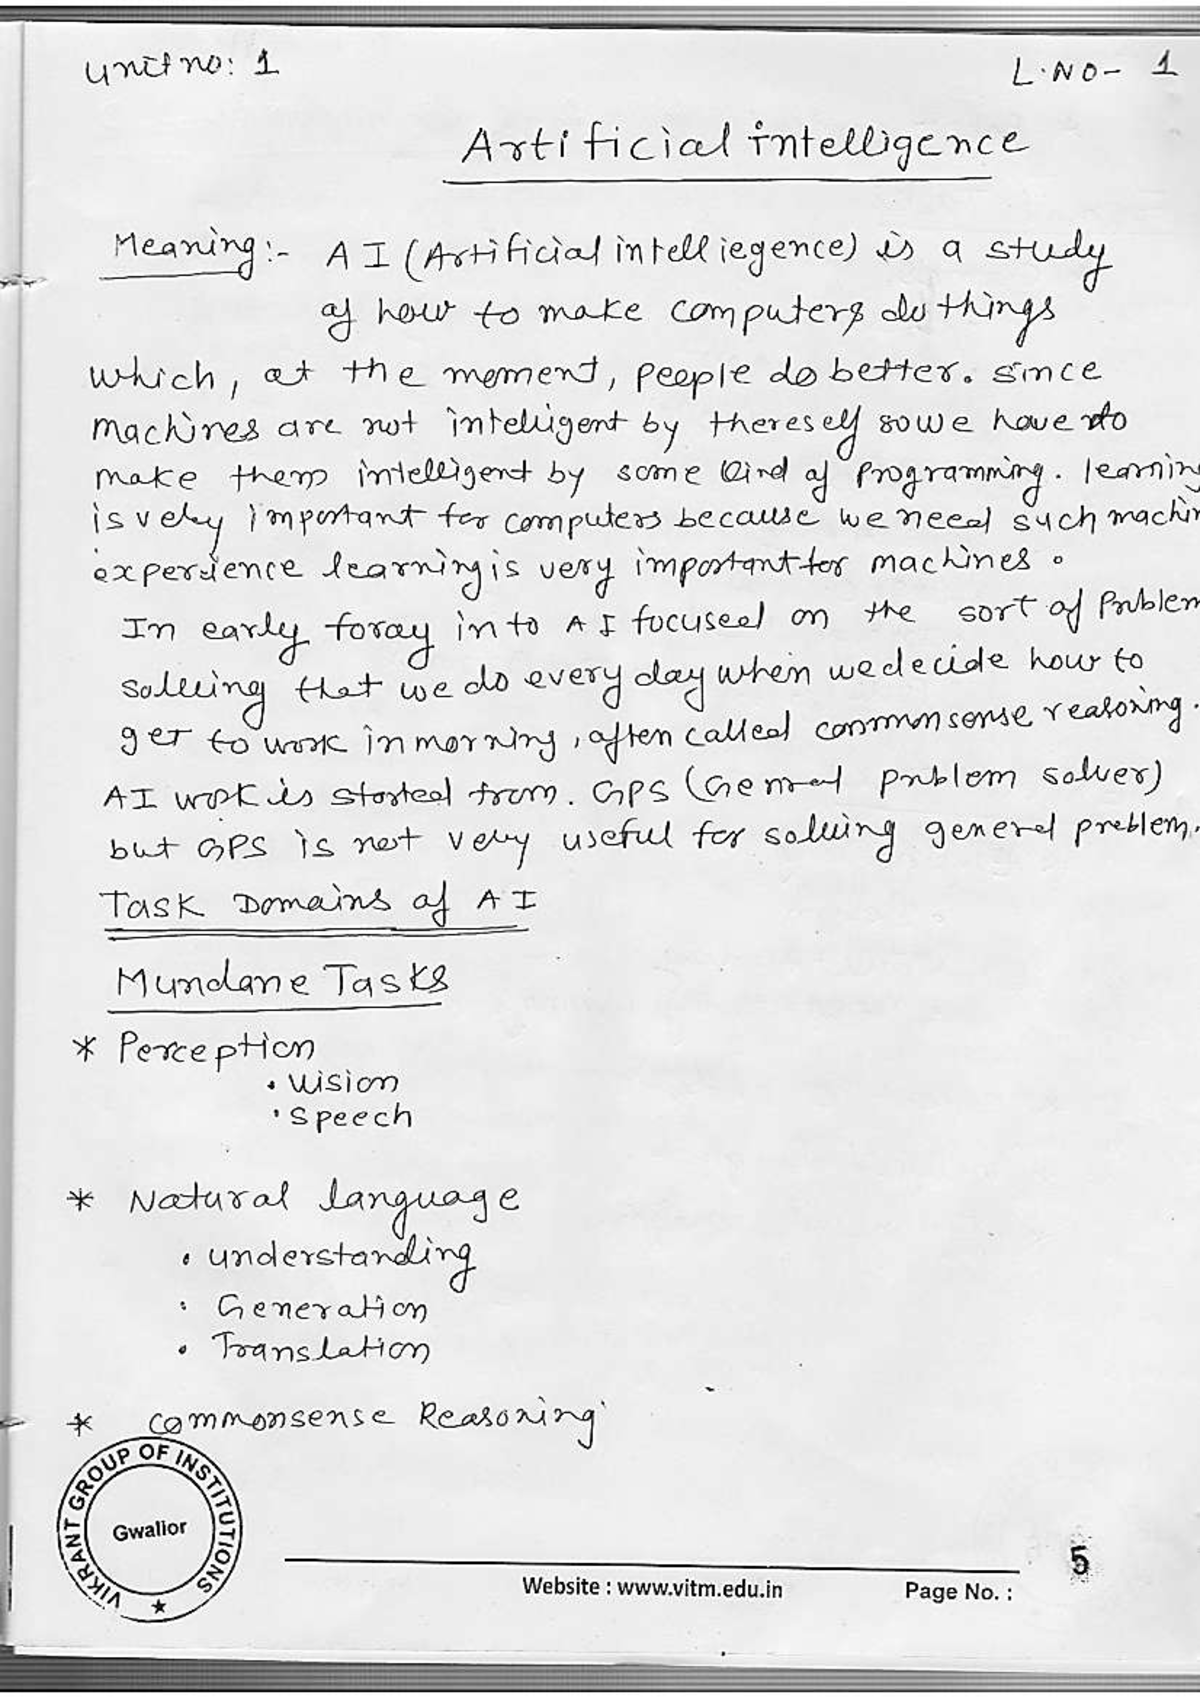 Unit no: 1
L.NO- 1
Artificial intelligence
Meaning:- AI (Artificial intelliegence) is a study
of how to make computers do things
which, at the moment, people do better. since
machines are not intelligent by thereself so we have to
make them intelligent by some kind of programming. learning
is very important for computers because we need such machin
experience learning is very important for machines.
In early foray into AI focused on the sort of Problem
solving that we do every day when we decide how to
get to work in morning, often called commonsense reasoning.
AI work is started from. GPS (General problem solver)
but GPS is not very useful for solving general problem.
Task Domains of AI
Mundane Tasks
* Perception
• Vision
• speech
* Natural language
• understanding
• Generation
• Translation
* commonsense Reasoning
VIKRANT GROUP OF INSTITUTIONS
Gwalior
5
Website : www.vitm.edu.in Page No. :